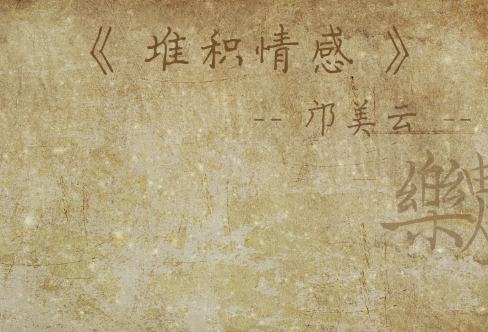 《堆积情感》
-- 邝美云 --
樂